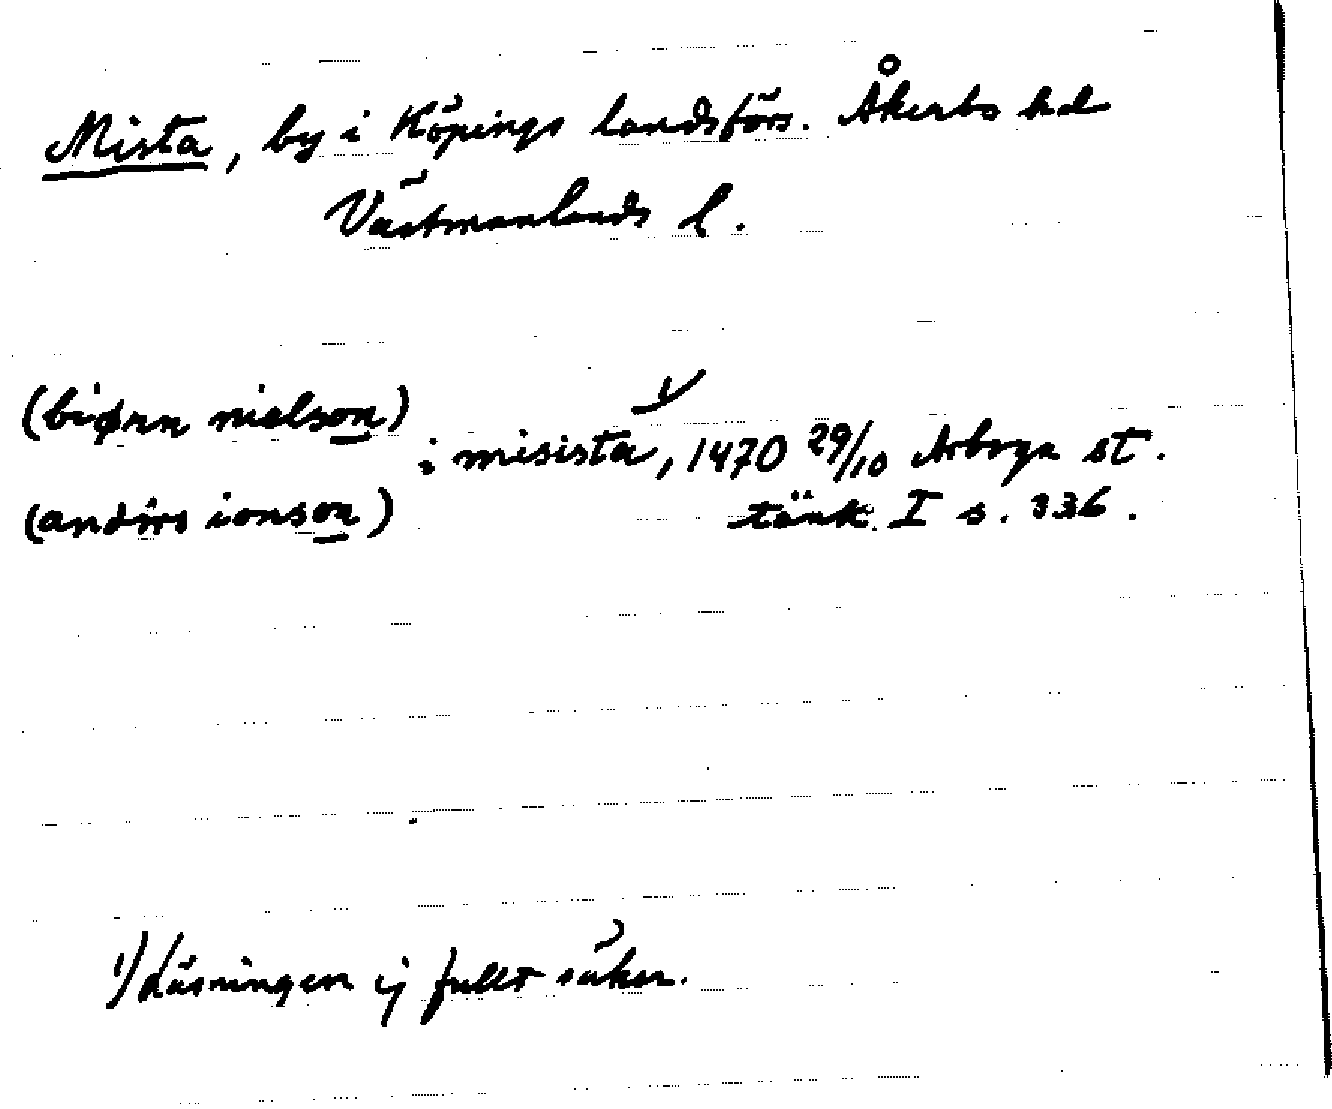 Mista, by i Köpings landsförs. Åkerbo hd
Västmanlands l.
(biørn nielson)
i misista, 1470 29/10 Arboga st.
(andirs ionson)
tänk. I s. 336.
1) Läsningen ej fullt säker.